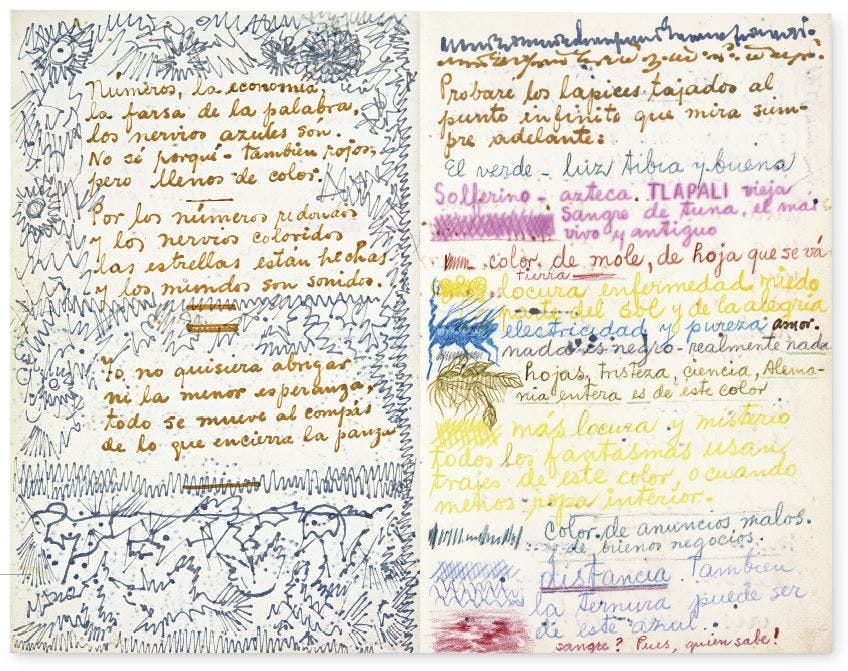 Números, la economía,
la farsa de la palabra,
los nervios azules són.
No sé porqué - también rojos,
pero llenos de color.
Por los números redondos
y los nervios coloridos
las estrellas están hechas
y los mundos son sonidos.
Yo no quisiera abrigar
ni la menor esperanza,
todo se mueve al compás
de lo que encierra la panza
Probare los lapices tajados al
punto infinito que mira siem-
pre adelante:
El verde - luz tibia y buena
Solferino - azteca. TLAPALI vieja
sangre de tuna, el más
vivo y antiguo
color de mole, de hoja que se vá
tierra
locura enfermedad miedo
parte del sol y de la alegria
electricidad y pureza amor.
nada es negro - realmente nada
hojas, tristeza, ciencia, Alema-
nia entera es de este color
más locura y misterio
todos los fantasmas usan
trajes de este color, o cuando
menos ropa interior.
color de anuncios malos.
y de buenos negocios.
distancia. Tambien
la ternura puede ser
de este azul
sangre? Pues, quien sabe!